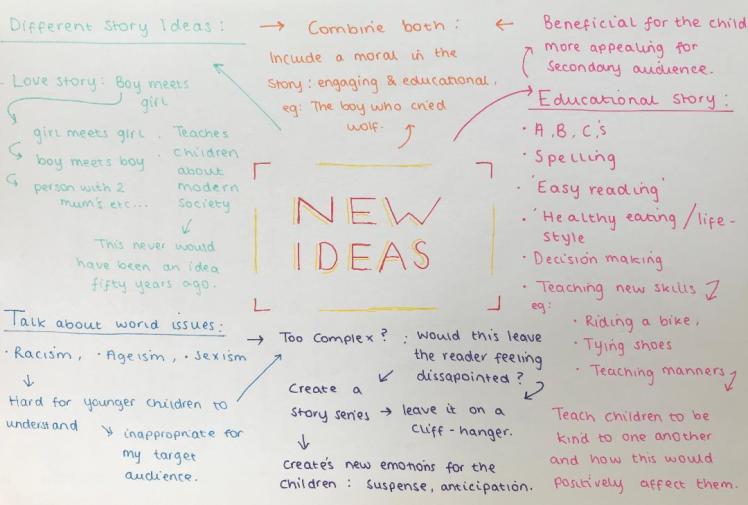 Different Story Ideas :
Love story : Boy meets
girl
girl meets girl .
boy meets boy
person with 2
mum's etc...
Teaches
children
about
modern
society
This never would
have been an idea
fifty years ago.
Combine both :
Include a moral in the
story : engaging & educational.
eg: The boy who cried
wolf.
Beneficial for the child
more appealing for
secondary audience.
Educational story :
· A, B, C,'s
· Spelling
· 'Easy reading'
· 'Healthy eating / life-
style
· Decision making
· Teaching new skills
eg:
· Riding a bike,
· Tying shoes
· Teaching manners
Teach children to be
kind to one another
and how this would
positively affect them.
NEW
IDEAS
Talk about world issues :
· Racism, · Ageism, · Sexism
Hard for younger children to
understand
inappropriate for
my target
audience.
Too complex ? : would this leave
the reader feeling
dissapointed ?
Create a
story series → leave it on a
cliff-hanger.
create's new emotions for the
children : suspense, anticipation.